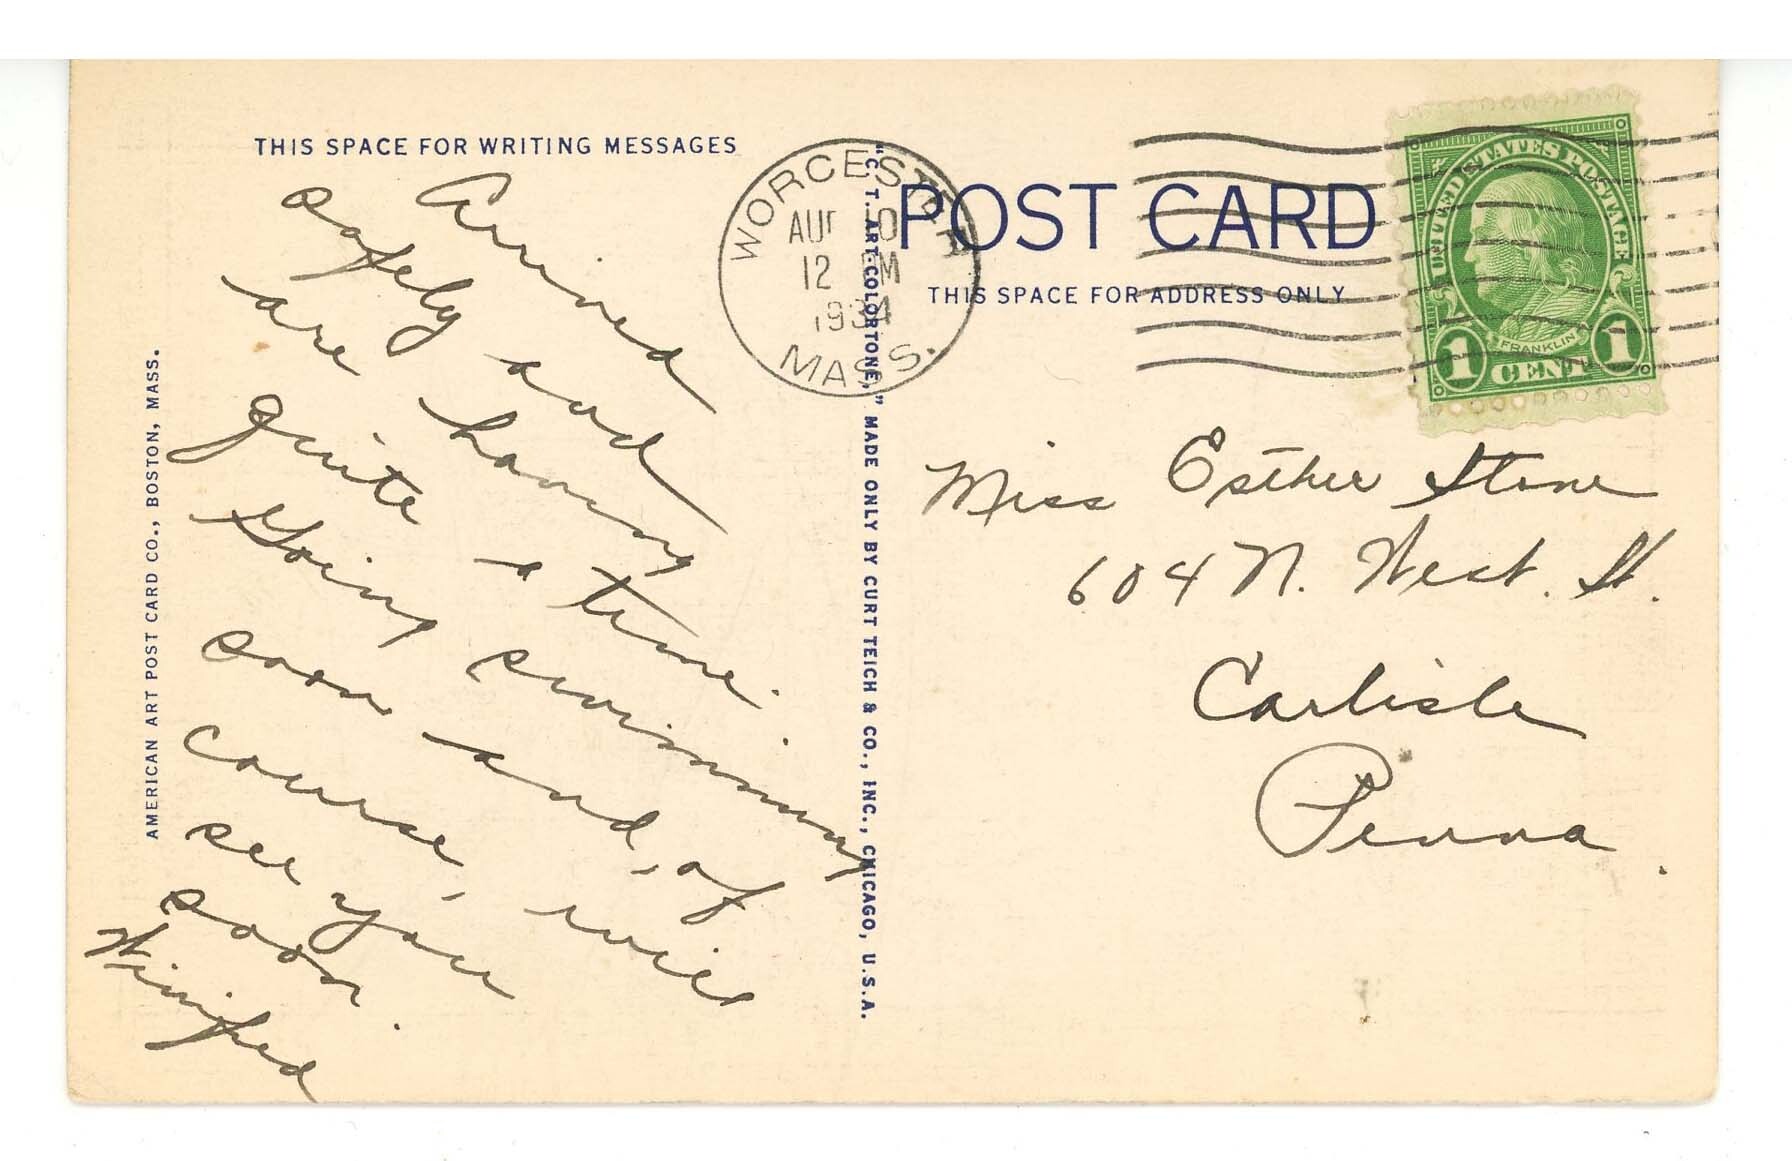 THIS SPACE FOR WRITING MESSAGES
Arrived
safely and
are having
quite a time.
Going swimming
soon and, of
course, will
see you
soon.
Winifred
AMERICAN ART POST CARD CO., BOSTON, MASS.
"C. T. ART-COLORTONE," MADE ONLY BY CURT TEICH & CO., INC., CHICAGO, U.S.A.
WORCESTER
12 M
1934
MASS.
POST CARD
THIS SPACE FOR ADDRESS ONLY
UNITED STATES POSTAGE
FRANKLIN
1 CENT 1
Miss Esther Stone
604 N. West. St.
Carlisle
Penna.